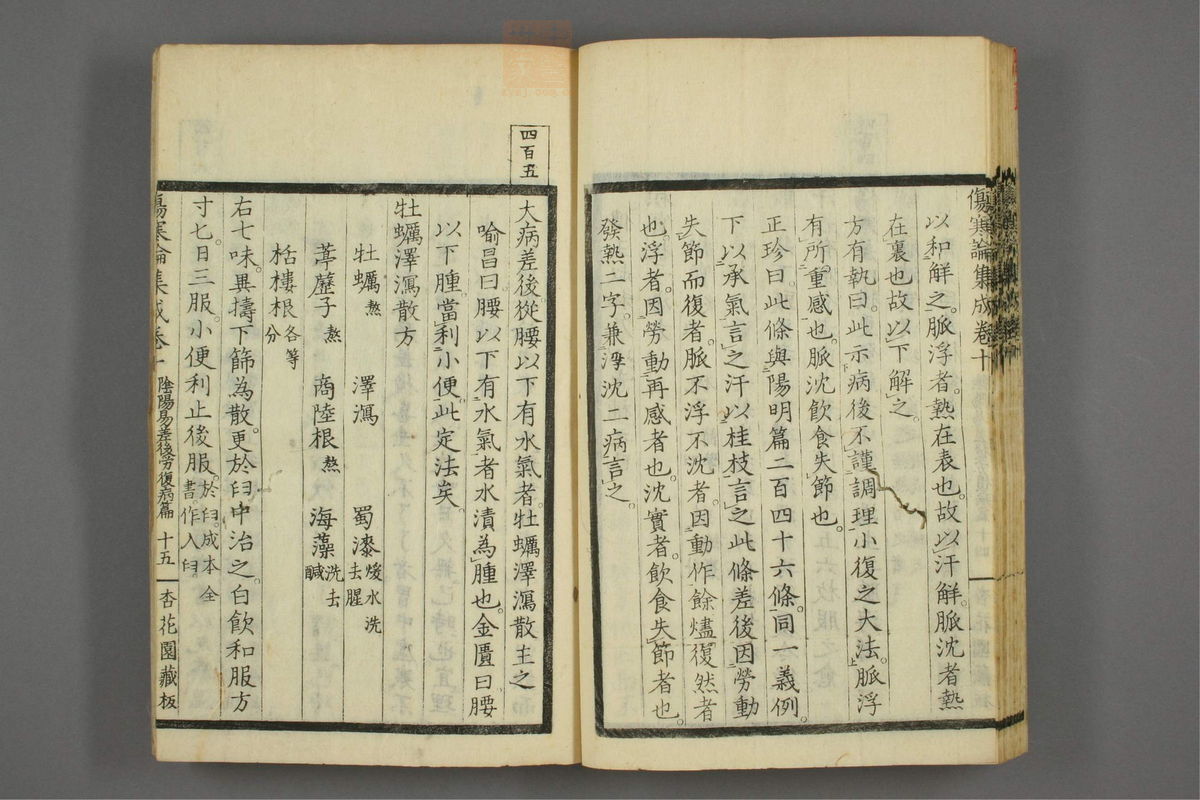 傷寒論集成卷十
以和解之。脈浮者。熱在表也。故以汗解。脈沈者熱
在裏也。故以下解之。
方有執曰。此示病後不謹調理。小復之大法。脈浮
有所重感也。脈沈飲食失節也。
正珍曰。此條與陽明篇二百四十六條。同一義例。
下以承氣言之。汗以桂枝言之。此條差後。因勞動
失節而復者。脈不浮不沈者。因動作餘燼復然者
也。浮者。因勞動再感者也。沈實者。飲食失節者也。
發熱二字。兼浮沈二病言之。
四百五
大病差後。從腰以下有水氣者。牡蠣澤瀉散主之
喻昌曰。腰以下有水氣者。水漬為腫也。金匱曰。腰
以下腫。當利小便。此定法矣。
牡蠣澤瀉散方
牡蠣熬 澤瀉 蜀漆煖水洗去腥
葶藶子熬 商陸根熬 海藻洗去鹹
栝樓根各等分
右七味。異擣下篩為散。更於臼中治之。白飲和服方
寸匕。日三服。小便利止後服。於臼。成本全書。作入臼。
傷寒論集成卷十 陰陽易差後勞復病篇 十五 杏花園藏板